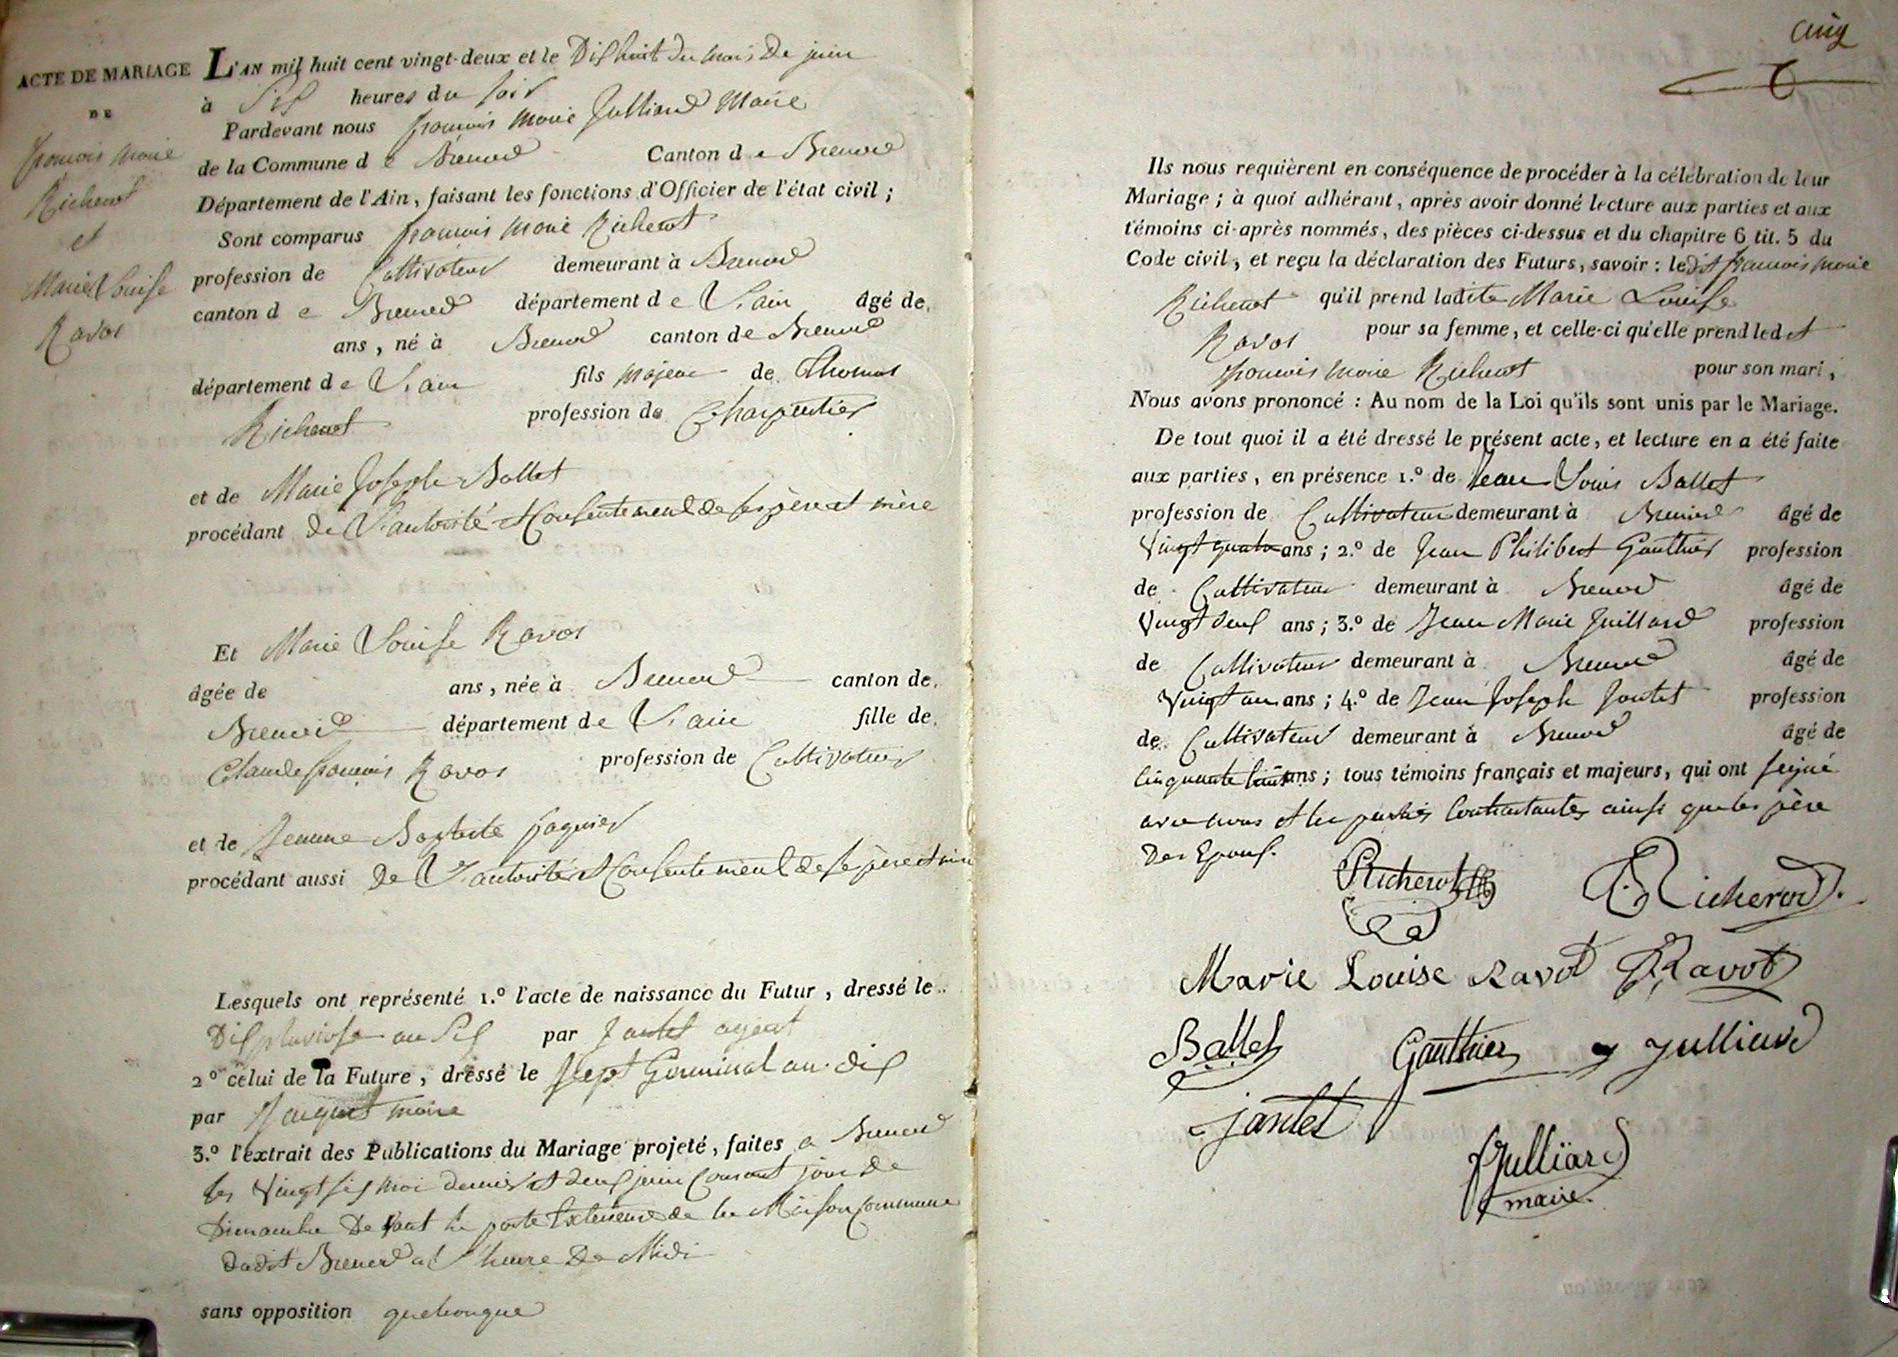 ACTE DE MARIAGE
DE
françois marie
Richerot
et
Marie Louise
Ravot
L'AN mil huit cent vingt-deux et le Dix huit du mois De juin
à Six heures du soir
Pardevant nous françois marie Julliard Maire
de la Commune d e Brenod Canton d e Brenod
Département de l'Ain, faisant les fonctions d'Officier de l'état civil ;
Sont comparus françois marie Richerot
profession de Cultivateur demeurant à Brenod
canton d e Brenod département d e L'ain âgé de
ans, né à Brenod canton de Brenod
département d e L'ain fils majeur de Thomas
Richerot profession de Charpentier
et de Marie Joseph Ballet
procédant de L'autorité et Consentement de ses père et mère
Et Marie Louise Ravot
âgée de ans, née à Brenod canton de
Brenod département de L'ain fille de
Claude françois Ravot profession de Cultivateur
et de Jeanne Baptiste
procédant aussi de L'autorité et Consentement de ses père et mère
Lesquels ont représenté 1.º l'acte de naissance du Futur, dressé le
Dix pluviose an Six par Jantet agent
2º celui de la Future, dressé le sept Germinal an dix
par maire
3.º l'extrait des Publications du Mariage projeté, faites a Brenod
les Vingt six mai dernier et deux juin Courant jour de
Dimanche De vant la porte Exterieure de la Maison commune
dudit Brenod a L'heure De Midi
sans opposition quelconque
cinq
Ils nous requièrent en conséquence de procéder à la célébration de leur
Mariage ; à quoi adhérant, après avoir donné lecture aux parties et aux
témoins ci-après nommés, des pièces ci-dessus et du chapitre 6 tit. 5 du
Code civil, et reçu la déclaration des Futurs, savoir : ledit françois marie
Richerot qu'il prend ladite Marie Louise
Ravot pour sa femme, et celle-ci qu'elle prend ledit
françois marie Richerot pour son mari ;
Nous avons prononcé : Au nom de la Loi qu'ils sont unis par le Mariage.
De tout quoi il a été dressé le présent acte, et lecture en a été faite
aux parties, en présence 1.º de Jean Louis Ballet
profession de Cultivateur demeurant à Brenod âgé de
Vingt quatre ans ; 2.º de Jean Philibert Gauthier profession
de Cultivateur demeurant à Brenod âgé de
Vingt ans ; 3.º de Jean Marie Juillard profession
de Cultivateur demeurant à Brenod âgé de
Vingt un ans ; 4.º de Jean Joseph Jantet profession
de Cultivateur demeurant à Brenod âgé de
Cinquante huit ans ; tous témoins français et majeurs, qui ont signé
avec nous et les parties Contractantes ainsi que les père
Des Epoux.
Richerot Richerod
Marie Louise Ravot Ravot
Ballet Gauthier J Julliard
jantet
Julliard
maire